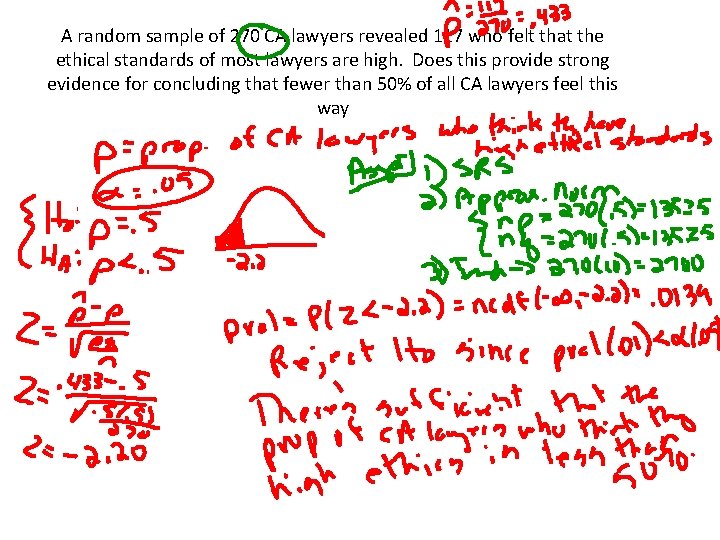 p̂ = 117/270 = .433
A random sample of 270 CA lawyers revealed 117 who felt that the
ethical standards of most lawyers are high. Does this provide strong
evidence for concluding that fewer than 50% of all CA lawyers feel this
way
p = prop. of CA lawyers who think they have
high ethical standards
α = .05
1) SRS
2) Approx. Norm
np = 270(.5) = 135 ≥ 5
nq = 270(.5) = 135 ≥ 5
3) Ind → 270(10) = 2700
H₀: p = .5
Hₐ: p < .5
-2.2
z = p̂ - p / √(pq/n)
pval = P(z < -2.2) = ncdf(-∞, -2.2) = .0139
Reject H₀ since pval(.01) < α(.05
z = .433 - .5 / √(.5(.5)/270)
z = -2.20
There's sufficient that the
prop of CA lawyers who think they
high ethics is less than
50%.